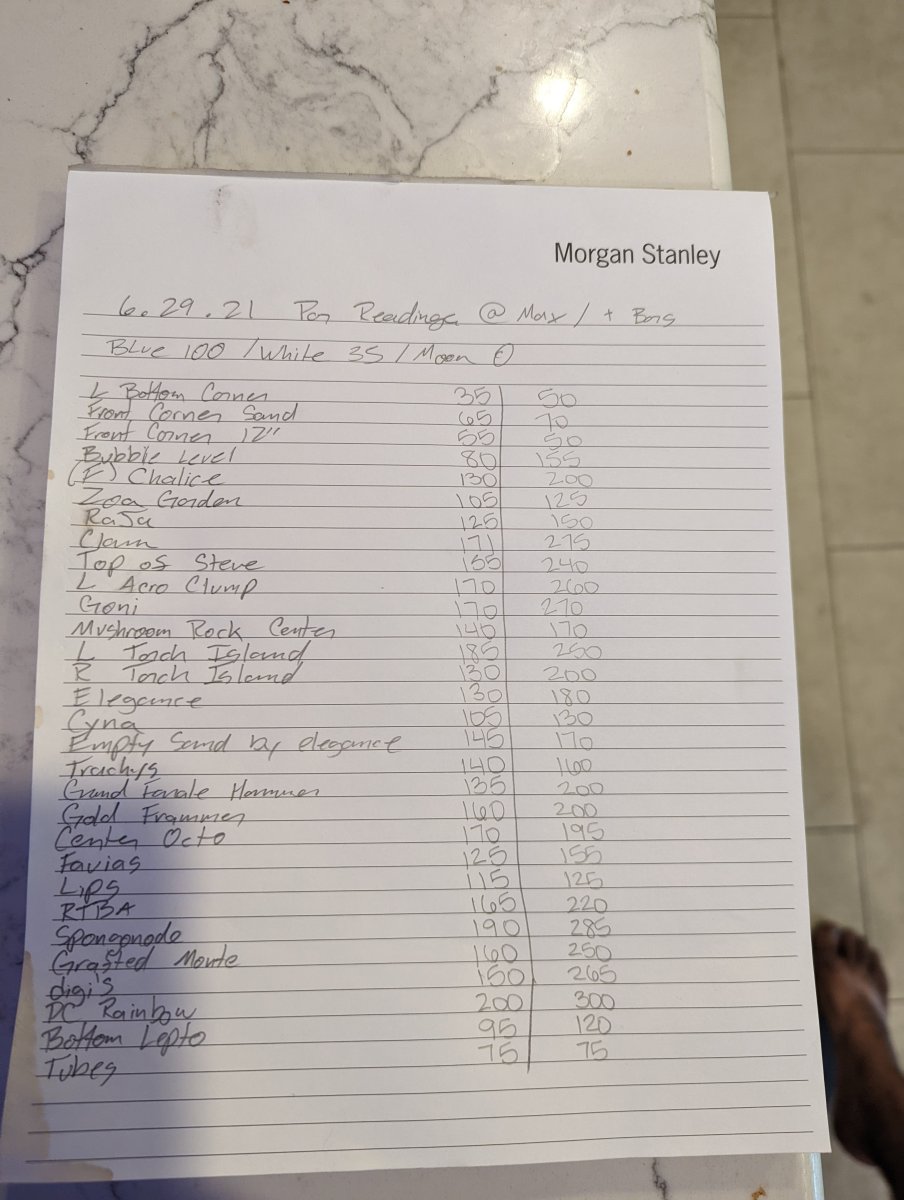 Morgan Stanley
6.29.21 Par Readings @ Max / + Bars
Blue 100 / White 35 / Moon 0
L Bottom Corner 35 50
Front Corner Sand 65 70
Front Corner 12" 55 50
Bubble Level 80 155
(F) Chalice 130 200
Zoa Garden 105 125
RaJa 125 150
Clam 171 275
Top of Steve 155 240
L Acro Clump 170 260
Goni 170 270
Mushroom Rock Center 140 170
L Torch Island 185 250
R Torch Island 130 200
Elegance 130 180
Cyna 105 130
Empty Sand by elegance 145 170
Trachys 140 160
Grand Hammer 135 200
Gold Frammer 160 200
Center Octo 170 195
Favias 125 155
Lips 115 125
RTBA 165 220
Spongonode 190 285
Grafted Monte 160 250
digi's 150 265
DC Rainbow 200 300
Bottom Lepto 95 120
Tubes 75 75